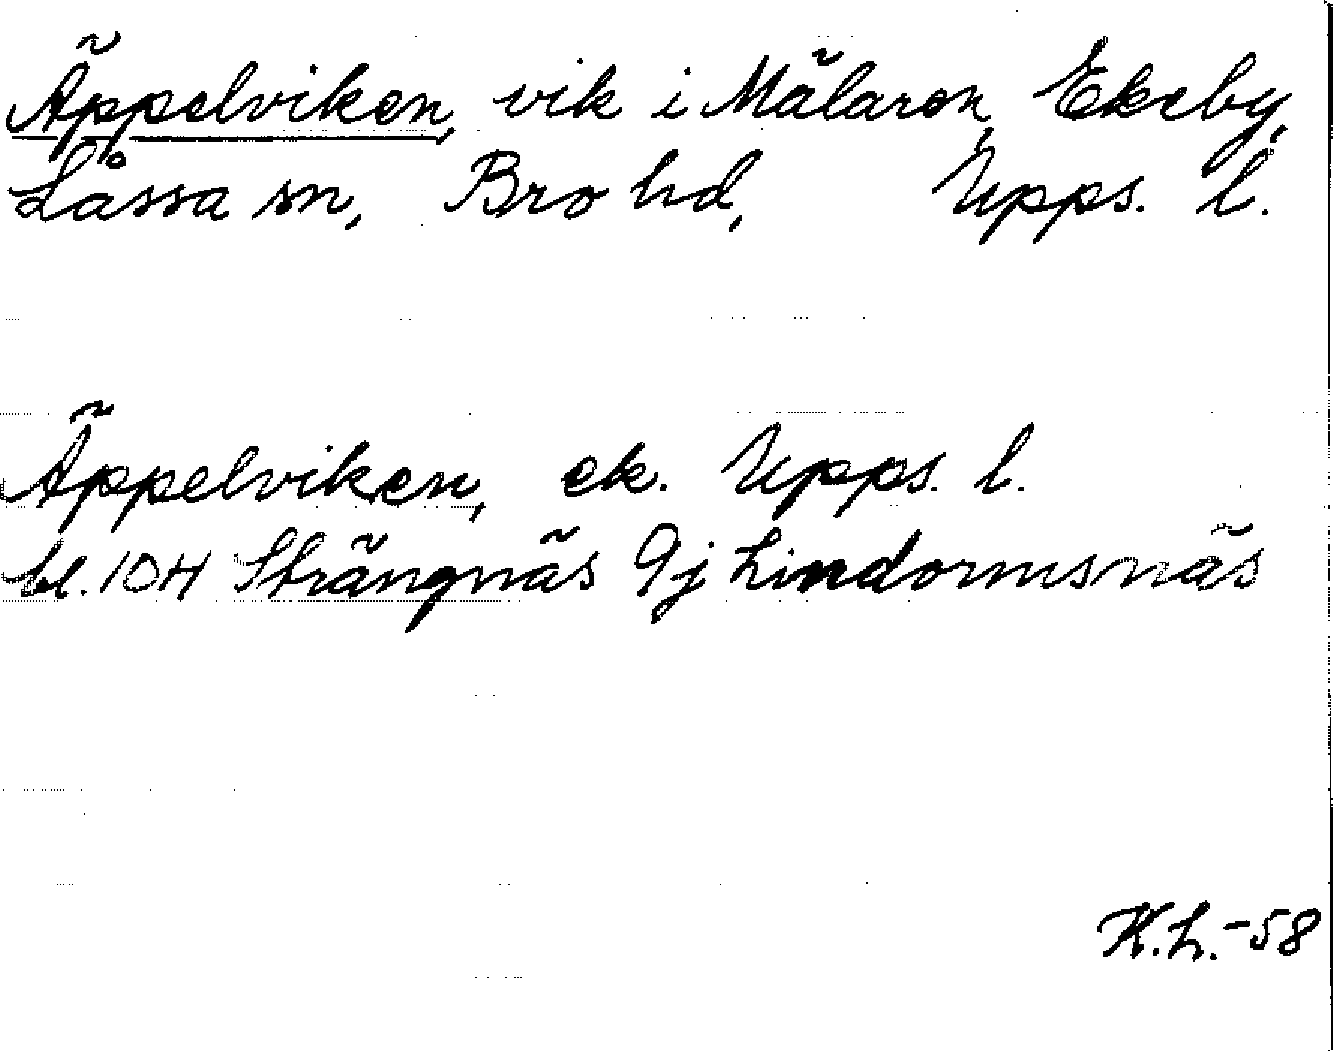 Äppelviken, vik i Mälaren, Ekeby,
Låssa sn, Bro hd, Upps. l.
Äppelviken, ek. Upps. l.
bl. 10H Strängnäs 9j Lindormsnäs
K.L.-58